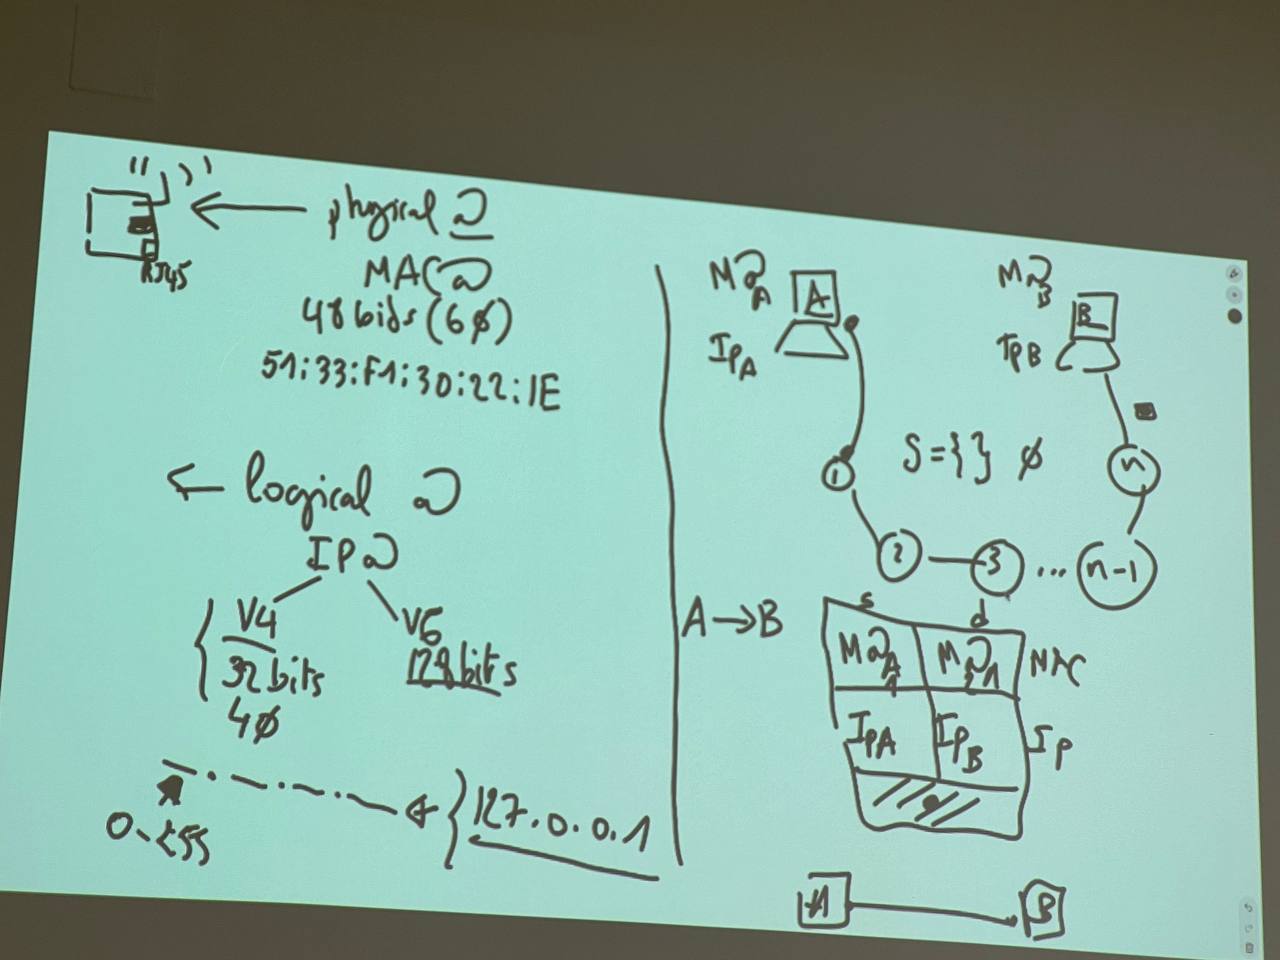 physical @
RJ45
MAC @
48 bits (6 ∅)
51:33:F1:30:22:1E
logical @
IP @
V4
V6
32 bits
128 bits
4∅
0-255
127.0.0.1
M@A
A
IPA
M@B
B
IPB
1
S={} ∅
n
2
3
...
n-1
A→B
s
d
M@A
M@1
MAC
IPA
IPB
IP
A
B